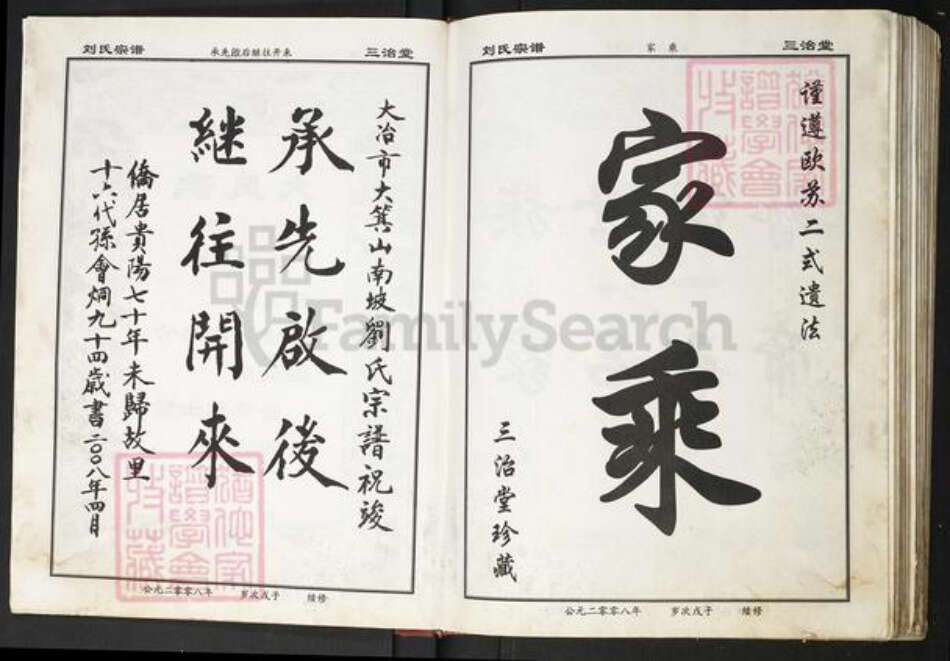 三治堂
家乘
刘氏宗谱
謹遵欧苏二式遺法
家乘
三治堂珍藏
公元二零零八年 岁次戊子 续修
三治堂
承先啟后继往开来
刘氏宗谱
大冶市大箕山南坡劉氏宗譜祝竣
承先啟後
継往開來
僑居貴陽七十年未歸故里
十六代孫會炯九十四歲書二〇〇八年四月
公元二零零八年 岁次戊子 续修
FamilySearch